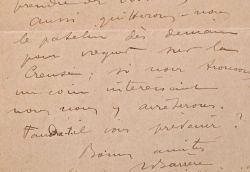 prendre de
Aussi quitterons-nous
le patelin dès demain
pour voguer sur la
Creuse; si nous trouvons
un coin intéressant
nous nous y arrêterons.
Faudra-t-il vous prévenir ?
Bonnes amitiés